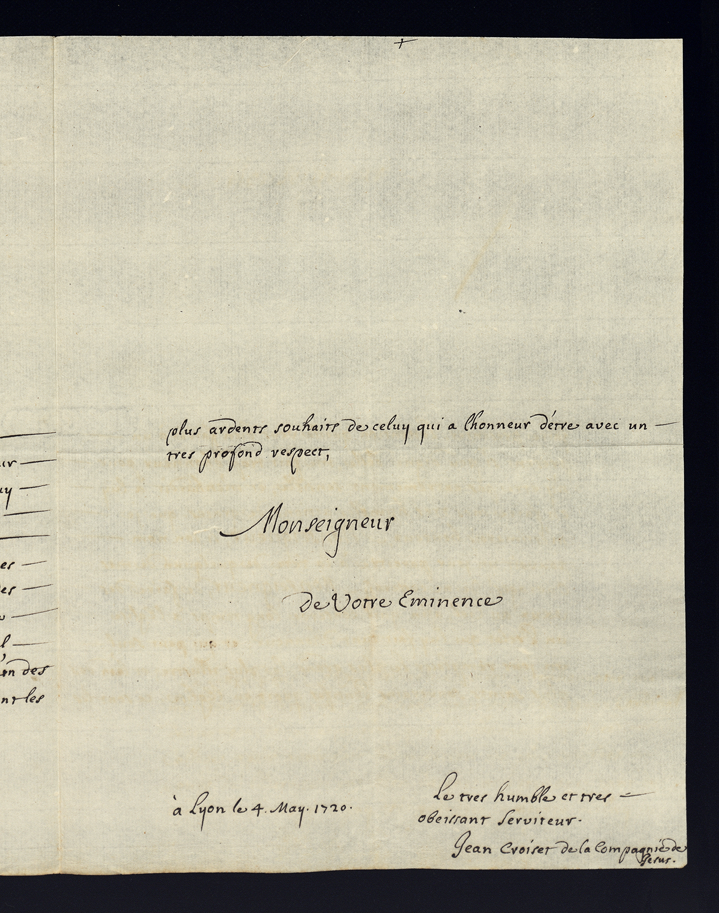 plus ardents souhaits de celuy qui a lhonneur d'étre avec un
tres profond respect,
Monseigneur
de Votre Eminence
à Lyon le 4. May. 1720.
Le tres humble et tres
obeissant serviteur.
Jean Croiset de la Compagnie de
Jesus.
uy
es
l
un des
nt les